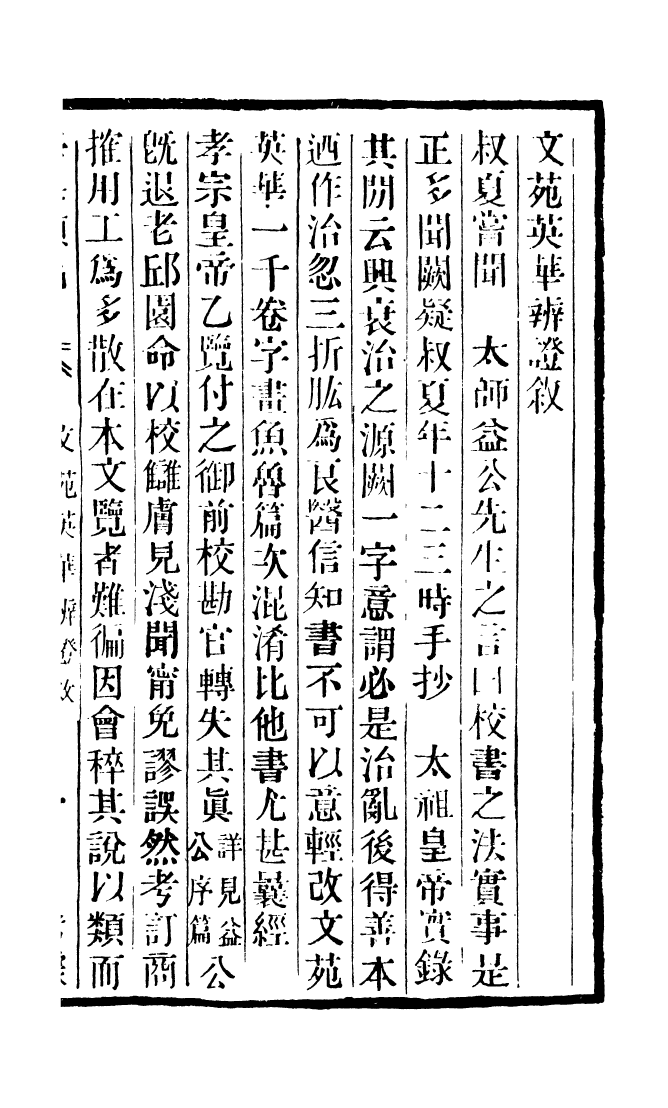 文苑英華辨證敘
叔夏嘗聞　太師益公先生之言曰校書之法實事是
正多聞闕疑叔夏年十二三時手抄　太祖皇帝實錄
其閒云興衰治之源闕一字意謂必是治亂後得善本
迺作治忽三折肱爲良醫信知書不可以意輕改文苑
英華一千卷字畫魚魯篇次混淆比他書尤甚曩經
孝宗皇帝乙覽付之御前校勘官轉失其眞詳見益公序篇公
旣退老邱園命以校讎膚見淺聞甯免謬誤然考訂商
搉用工爲多散在本文覽者難徧因會稡其說以類而
文苑英華辨證敘